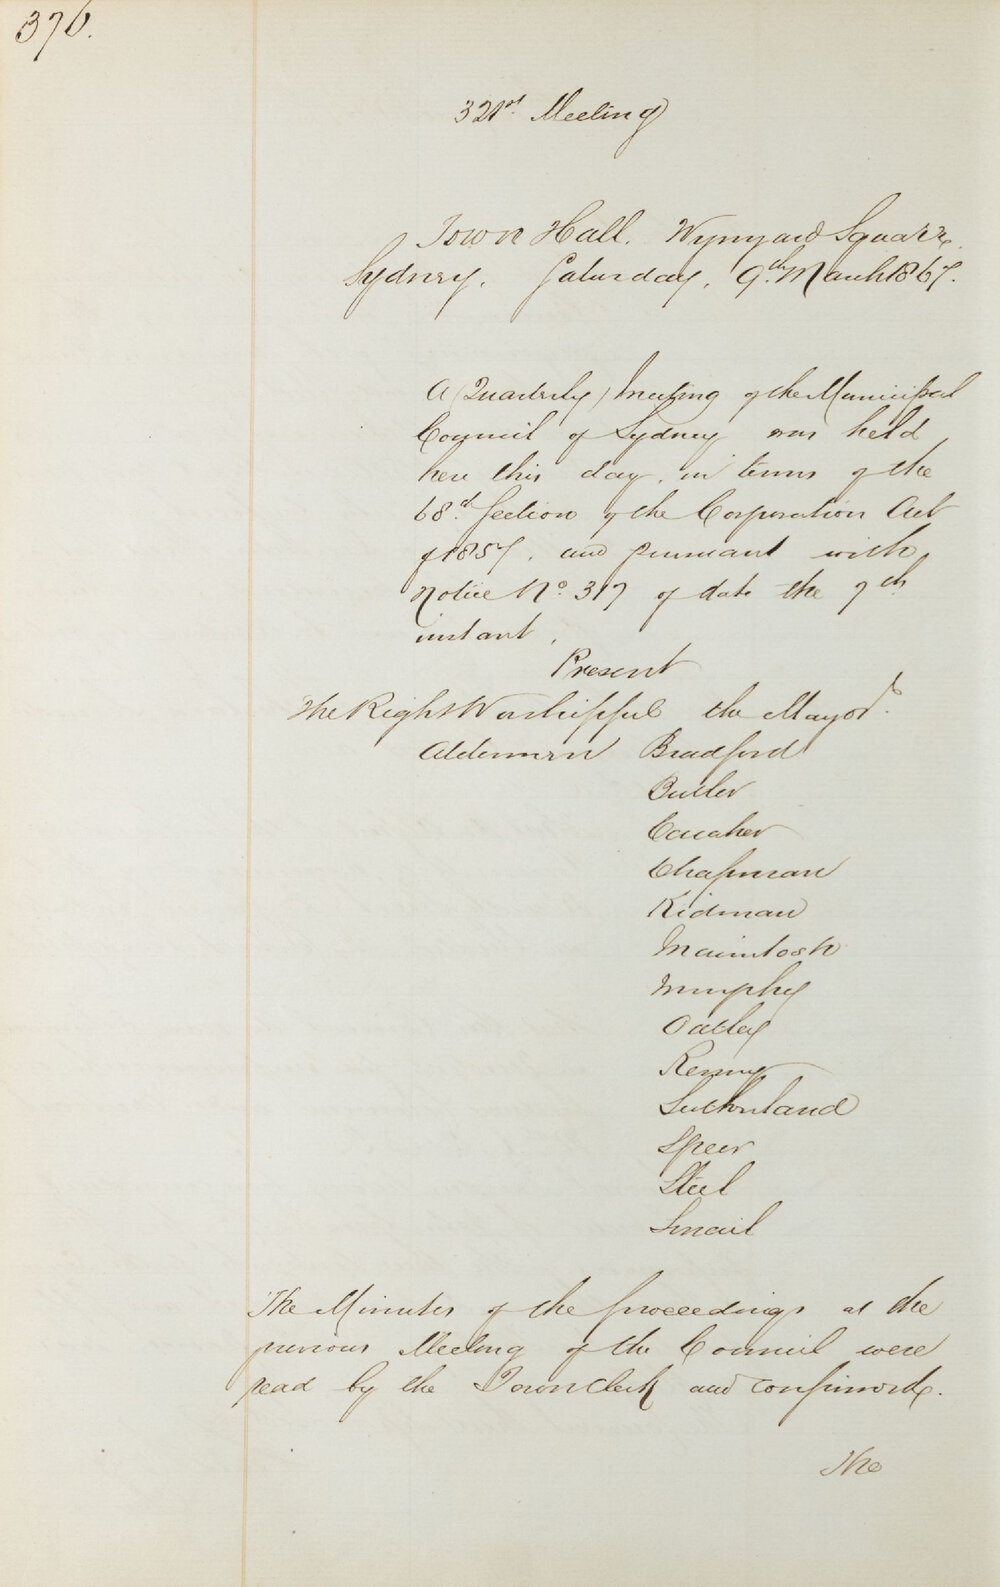 376.
321st. Meeting
Town Hall. Wynyard Square,
Sydney. Saturday, 9th. March 1867.
A (Quarterly) Meeting of the Municipal
Council of Sydney was held
here this day, in terms of the
68.d Section of the Corporation Act
of 1857, and pursuant with
Notice No. 317 of date the 7th
instant.
Present
The Right Worshipful the Mayor.
Aldermen Bradford
Butler
Caraher
Chapman
Kidman
Macintosh
Murphy
Oatley
Renny
Sutherland
Speer
Steel
Smail
The Minutes of the proceedings at the
previous Meeting of the Council were
read by the Town Clerk and confirmed.
The